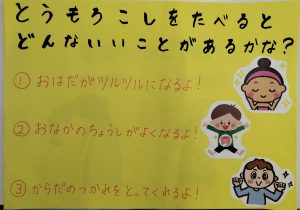 とうもろこしをたべると
どんないいことがあるかな?
① おはだがツルツルになるよ!
② おなかのちょうしがよくなるよ!
③ からだのつかれをとってくれるよ!